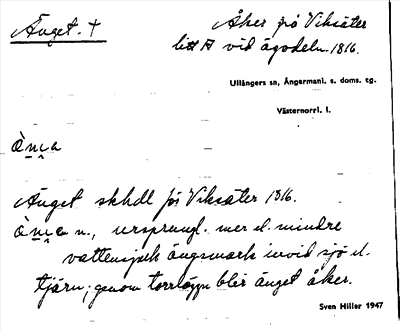 Änget. +
Åker på Viksäter
litt A vid ägodeln. 1816.
Ullångers sn, Ångermanl. s. doms. tg.
Västernorrl. l.
Änget skhdl på Viksäter 1816.
n., ursprungl. mer el. mindre
vattensjuk ängsmark invid sjö el.
tjärn; genom torrläggn blir änget åker.
Sven Hiller 1947